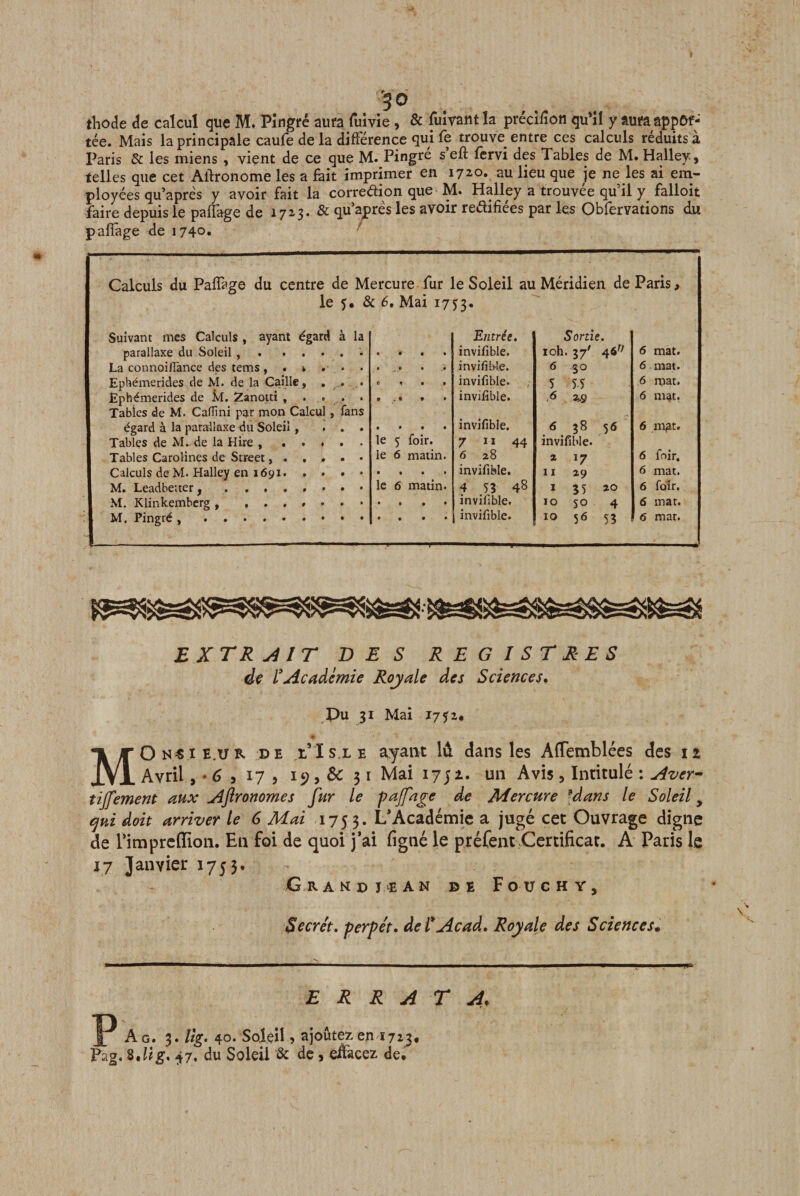 30
thode de calcul que M. Pingré aura ſuivie, & ſuivant la préciſion qu'il y aura appor-
tée. Mais la principale cauſe de la différence qui ſe trouve entre ces calculs réduits à
Paris & les miens, vient de ce que M. Pingré s'eſt ſervi des Tables de M. Halley,
telles que cet Aſtronome les a fait imprimer en 1720. au lieu que je ne les ai em-
ployées qu'après y avoir fait la correction que M. Halley a trouvée qu'il y falloit
faire depuis le paſſage de 1723. & qu'après les avoir rectifiées par les Obſervations du
paſſage de 1740.
Calculs du Paſſage du centre de Mercure ſur le Soleil au Méridien de Paris,
le 5. & 6. Mai 1753.
Entrée. Sortie.
Suivant mes Calculs, ayant égard à la
parallaxe du Soleil, . . . . . . . . . . inviſible. 10h. 37′ 46″ 6 mat.
La connoiſſance des tems, . . . . . . . . . inviſible. 6 30 6 mat.
Ephémerides de M. de la Caille, . . . . . . . inviſible. 5 55 6 mat.
Ephémerides de M. Zanotti, . . . . . . . . inviſible. 6 29 6 mat.
Tables de M. Caſſini par mon Calcul, ſans
égard à la parallaxe du Soleil, . . . . . . . inviſible. 6 38 56 6 mat.
Tables de M. de la Hire, . . . . . le 5 ſoir. 7 11 44 inviſible.
Tables Carolines de Street, . . . . . le 6 matin. 6 28 2 17 6 ſoir.
Calculs de M. Halley en 1691. . . . . . . . . inviſible. 11 29 6 mat.
M. Leadbetter, . . . . . . . . le 6 matin. 4 53 48 1 35 20 6 ſoir.
M. Klinkemberg, . . . . . . . . . . . inviſible. 10 50 4 6 mat.
M. Pingré, . . . . . . . . . . . . . inviſible. 10 56 53 6 mat.
EXTRAIT DES REGISTRES
de l'Académie Royale des Sciences.
Du 31 Mai 1752.
MONSIEUR DE L'ISLE ayant lû dans les Aſſemblées des 12
Avril, 6, 17, 19, & 31 Mai 1752. un Avis, Intitulé : Aver-
tiſſement aux Aſtronomes ſur le paſſage de Mercure dans le Soleil,
qui doit arriver le 6 Mai 1753. L'Académie a jugé cet Ouvrage digne
de l'impreſſion. En foi de quoi j'ai ſigné le préſent Certificat. A Paris le
17 Janvier 1753.
GRANDJEAN DE FOUCHY,
Secrét. perpét. de l'Acad. Royale des Sciences.
ERRATA.
PAG. 3. lig. 40. Soleil, ajoûtez en 1723.
Pag. 8. lig. 47. du Soleil & de, effacez de.